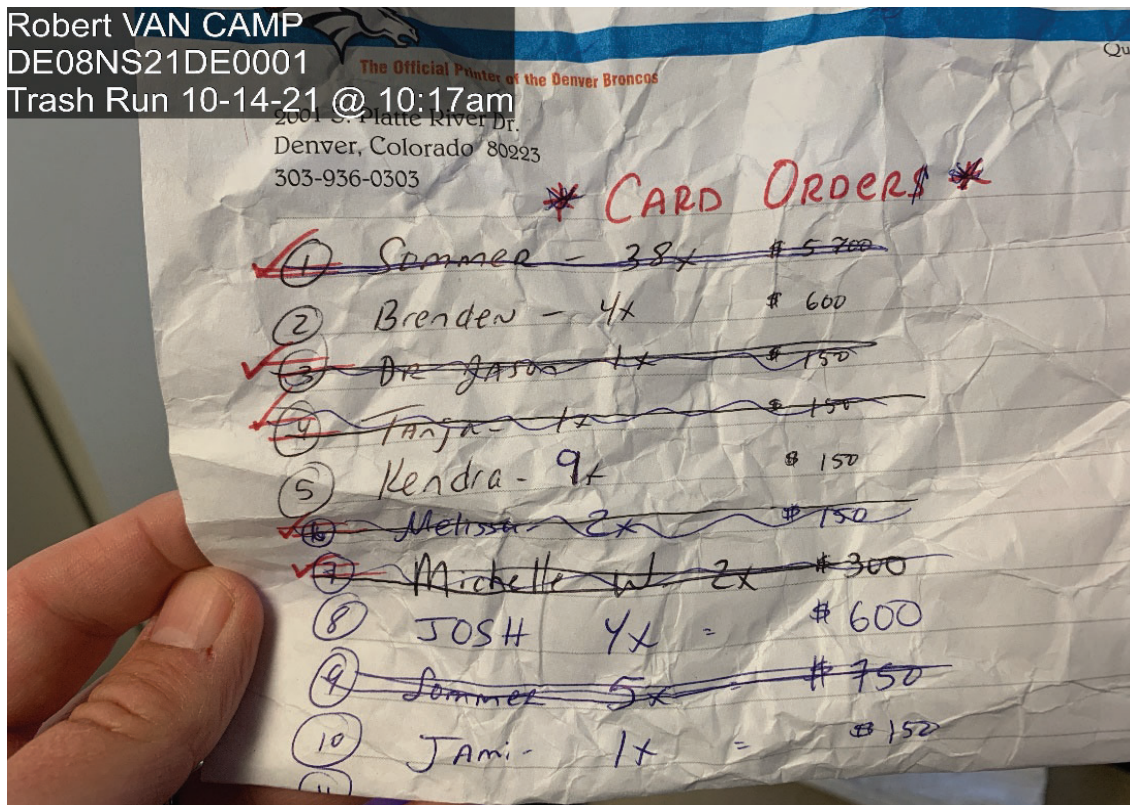 Robert VAN CAMP
DE08NS21DE0001
Trash Run 10-14-21 @ 10:17am
Qu
The Official Printer of the Denver Broncos
2001 S. Platte River Dr.
Denver, Colorado 80223
303-936-0303
* CARD ORDER$ *
1 Sommer - 38x $ 5700
2 Brenden - 4x $ 600
3 DR JASON 1x $ 150
4 Tanja - 1x $ 150
5 Kendra - 9x $ 150
6 Melissa - 2x $ 150
7 Michelle W. 2x $ 300
8 JOSH 4x = $ 600
9 Sommer 5x = $ 750
10 JAmi - 1x = $ 150
11